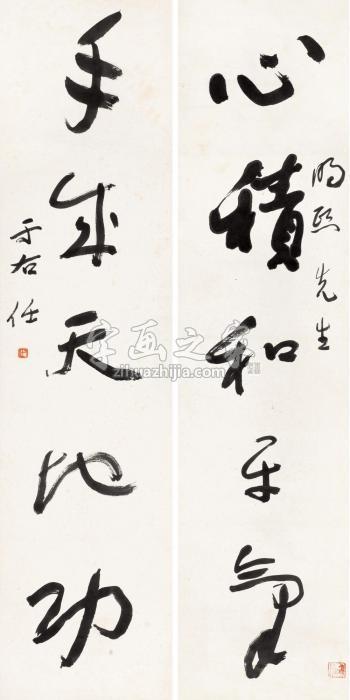 心積和平氣
明熙先生
手成天地功
于右任
字画之家
zihuazhijia.com